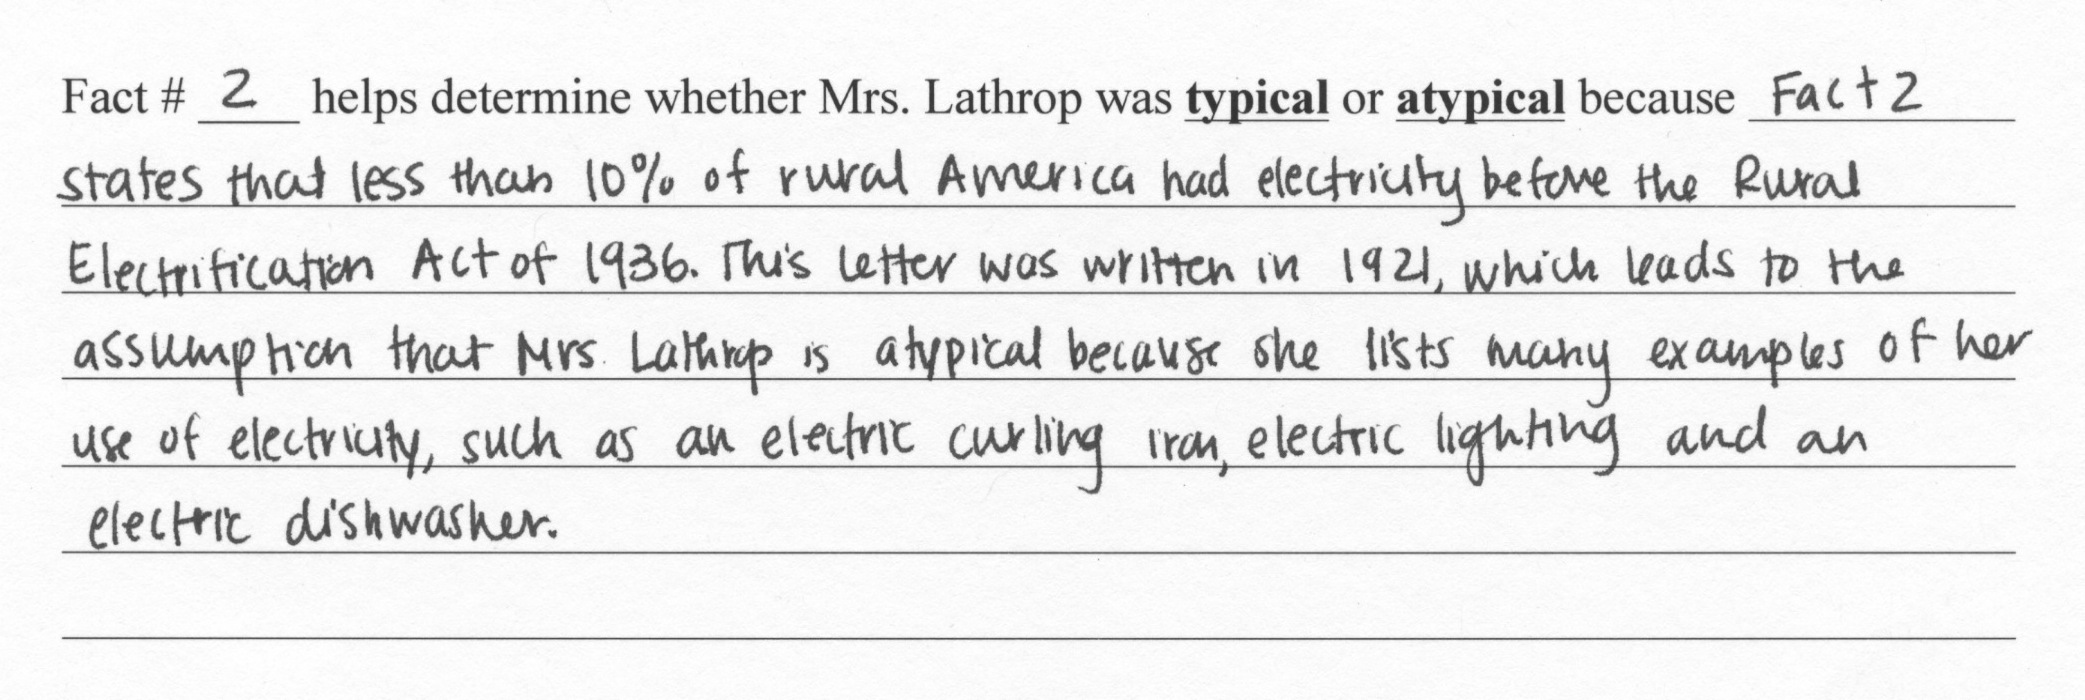 Fact # 2 helps determine whether Mrs. Lathrop was typical or atypical because Fact 2
states that less than 10% of rural America had electricity before the Rural
Electrification Act of 1936. This letter was written in 1921, which leads to the
assumption that Mrs. Lathrop is atypical because she lists many examples of her
use of electricity, such as an electric curling iron, electric lighting and an
electric dishwasher.